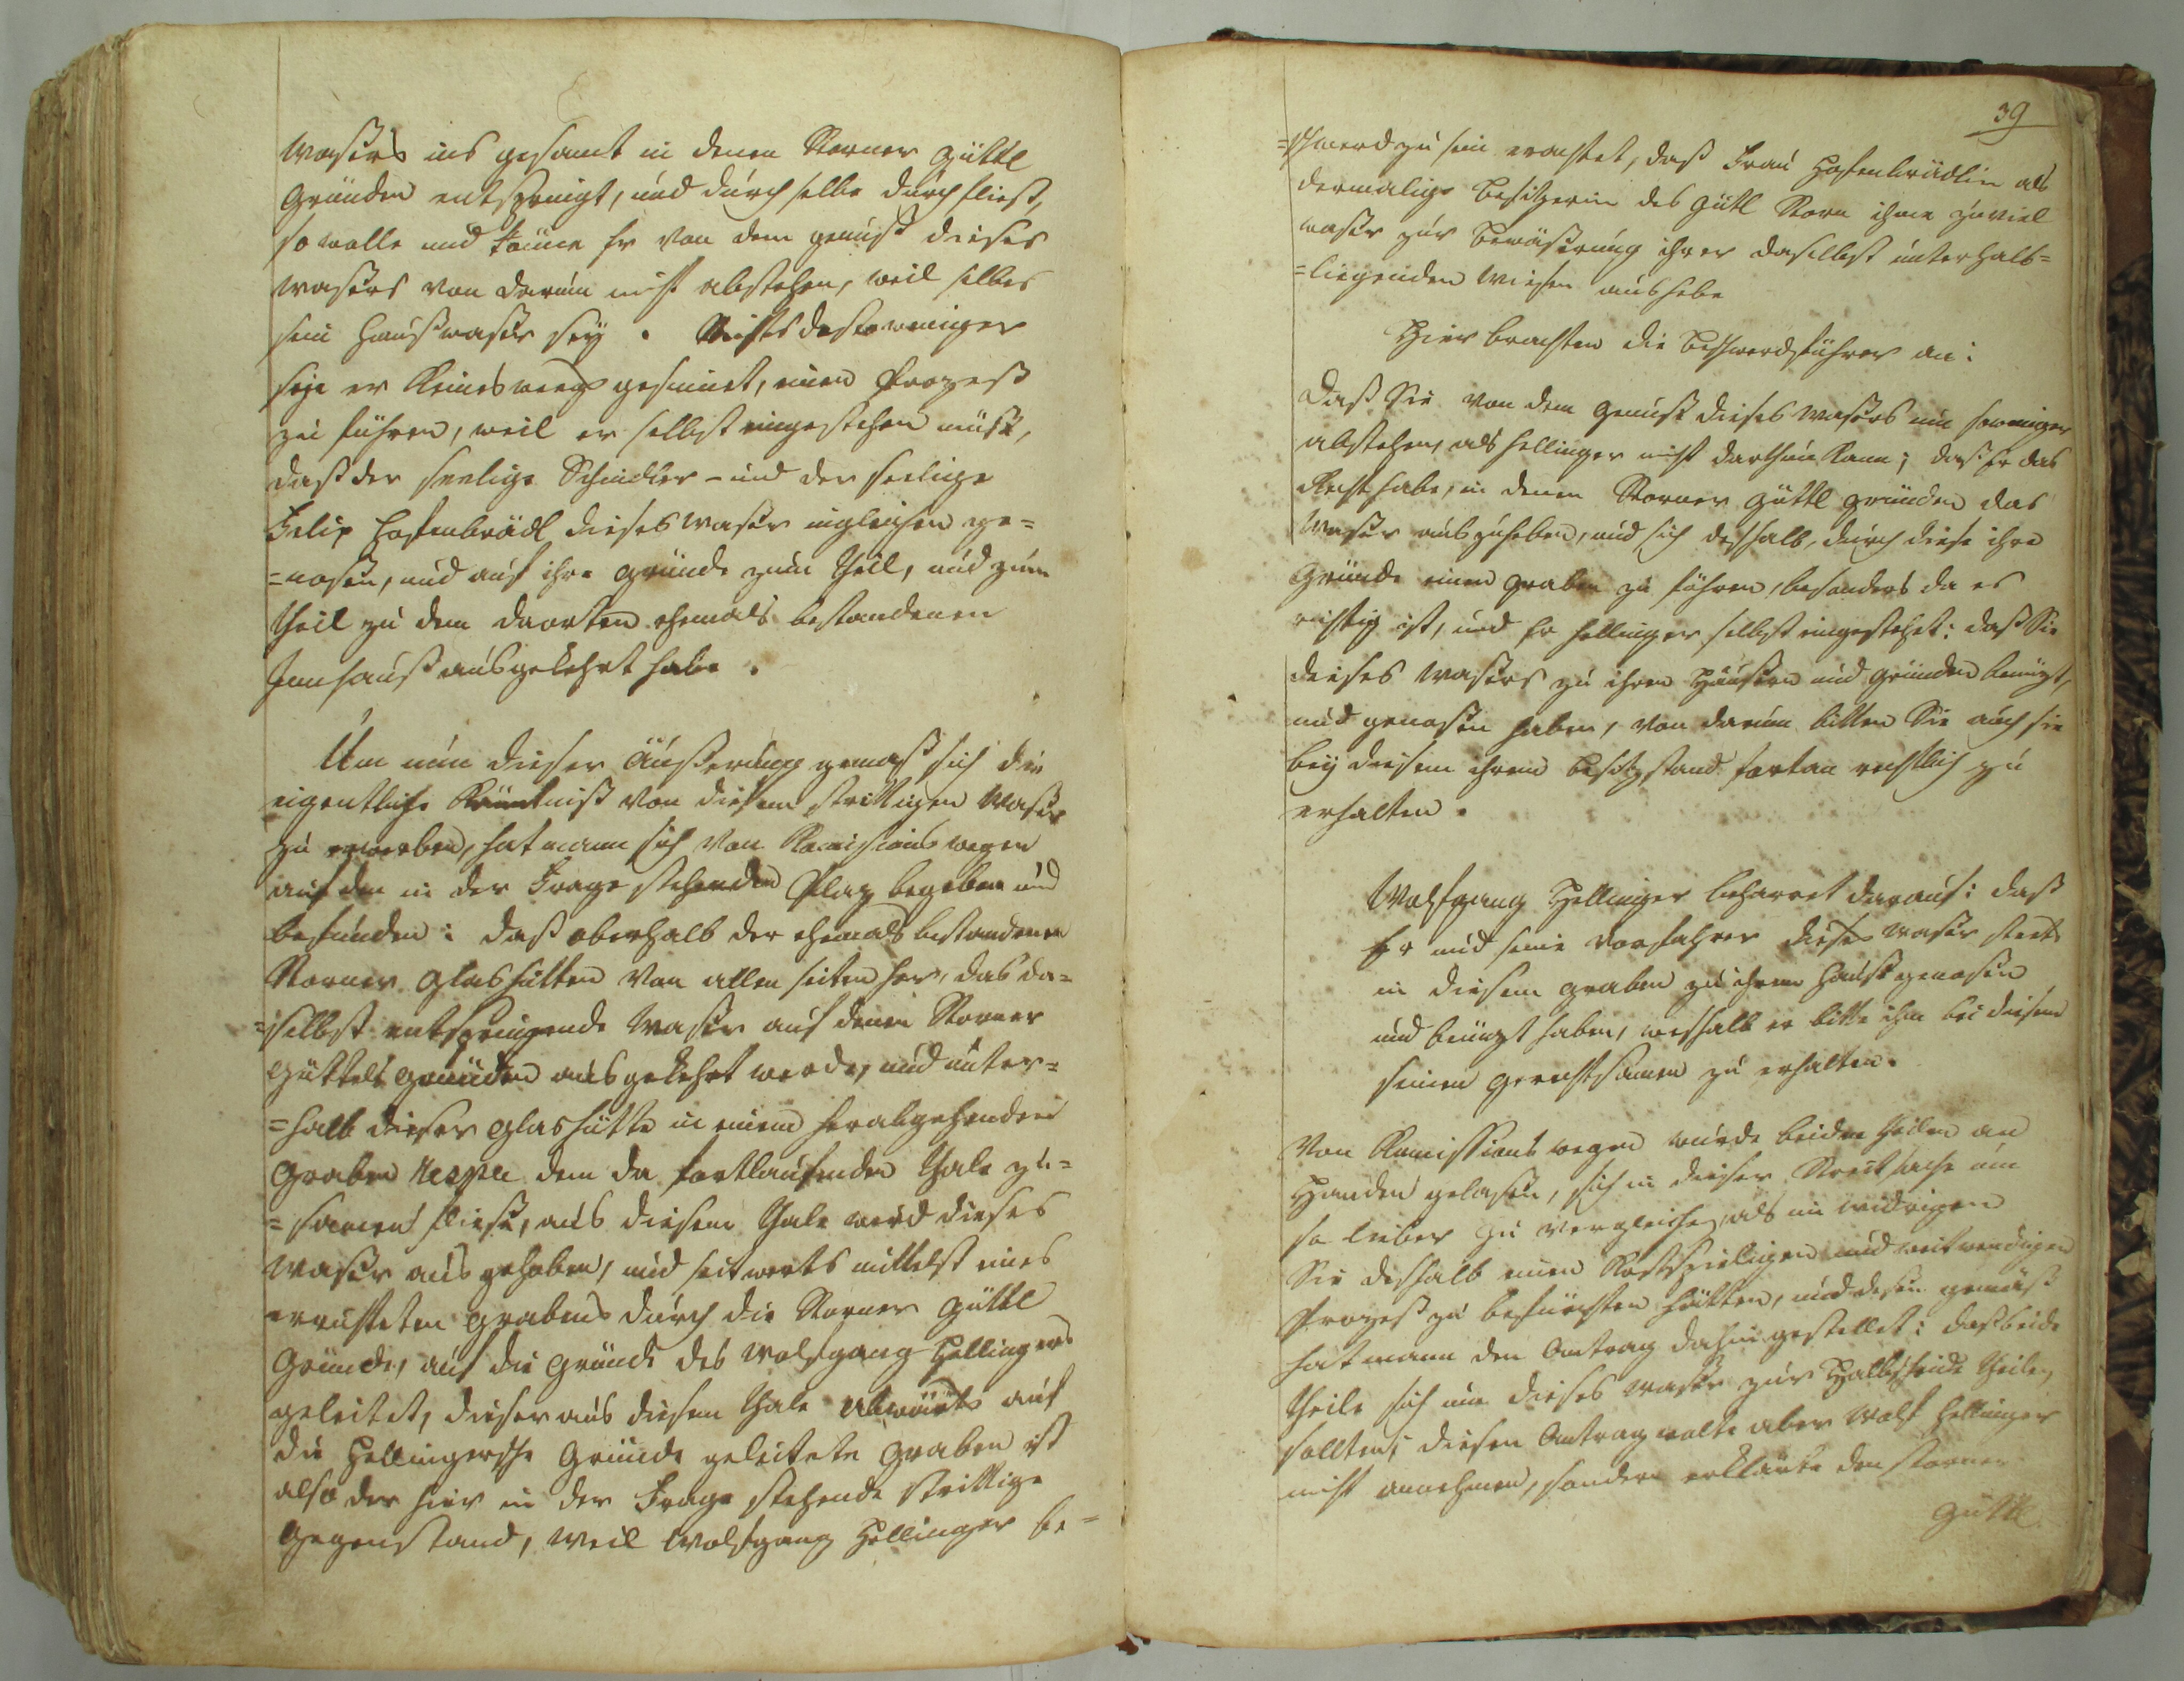 Waßers ins gesamt in denen Korner Güttl
Gründen entspringt, und durch selbe durch fließt,
so wolle und könne Er von dem genuß dieses
Waßers von darum nicht abstehen, weil selbes
sein Haußwaßer sey. Nichts destoweniger
seye er Keinesweegs gesinnet, einen Prozeß
zu führen, weil er selbst eingestehen müße,
daß der seelige Schindler - und der seelige
Felix Hafenbrädl dieses Waßer ingleichen ge=
=noßen, und auf ihre Gründe zum theil, und zum
theil zu dem daorten ehemals bestandenen
Innhauß ausgekehrt habe.
Um nun dieser Äußerung gemäß sich die
eigentliche Känntniß von diesem strittigen Waßer
zu erwerben, hat mann sich von Komißions wegen
auf den in der Frage stehenden Plaz begeben und
befunden: daß oberhalb der ehemals bestandenen
Korner Glashütten von allen seiten her, das da=
=selbst entspringende Waßer auf denen Korner
Güttels Gründen ausgekehrt werde, und unter=
=halb dieser Glashütte in einem herabgehenden
Graben nespee dem da fortlaufenden Thale zu=
=samen fließe, aus diesem Thale wird dieses
Waßer ausgehoben, und seitwerts mittelst eines
errichteten Grabens durch die Korner Güttl
Gründe, auf die Gründe des Wolfgang Hellingers
geleitet, dieser aus diesem Thale abwärts auf
die Hellingersche Gründe geleitete Graben ist
also der hier in der Frage stehende strittige
Gegenstand, weil Wolfgang Hellinger be=
39
=schwerd zu sein erachtet, daß Frau Hafenbrädlin als
dermalige Besitzerin des Gütl Korn ihme zuviel
waßer zur Bewäßerung ihrer daselbst unterhalb=
=liegenden Wiesen aushebe
Hier brachten die Beschwerdsführer an:
Daß Sie von dem Genuß dieses Waßers um soweniger
abstehen, als Hellinger nicht darthun kann; daß Er das
Recht habe, in denen Korner Güttl Gründen das
Waßer auszuheben, und sich deshalb, durch diese ihre
Gründe einen Graben zu führen, besonders da es
richtig ist, und Er Hellinger selbst eingestehet: daß Sie
dieses Waßers zu ihren Häußern und Gründen benüzt,
und genoßen haben, von darum bitten Sie auch sie
bey diesem ihrem Besitzstand fortan rechtlich zu
erhalten.
Wolfgang Hellinger beharret darauf: daß
Er und seine Vorfahrer dieses Waßer steets
in diesem Graben zu ihrem Hauße genoßen
und benüzt haben, weshalb er bitte ihn bei diesem
seinen Gerechtsamen zu erhalten.
Von Komissions wegen wurde beiden theilen an
Handen gelaßen, sich in dieser Streitsache um
so lieber zu vergleichen, als im widrigen
Sie deshalb einen Kostspieligen und weitwendigen
Prozeß zu befürchten hätten, und deßen gemäß
hat mann den Antrag dahin gestellet: daß beide
theile sich um dieses Waßer zur Halbscheide theilen
sollten; diesen Antrag wolte aber Wolf Hellinger
nicht annehmen, sondern erklärte den Korner
Güttl